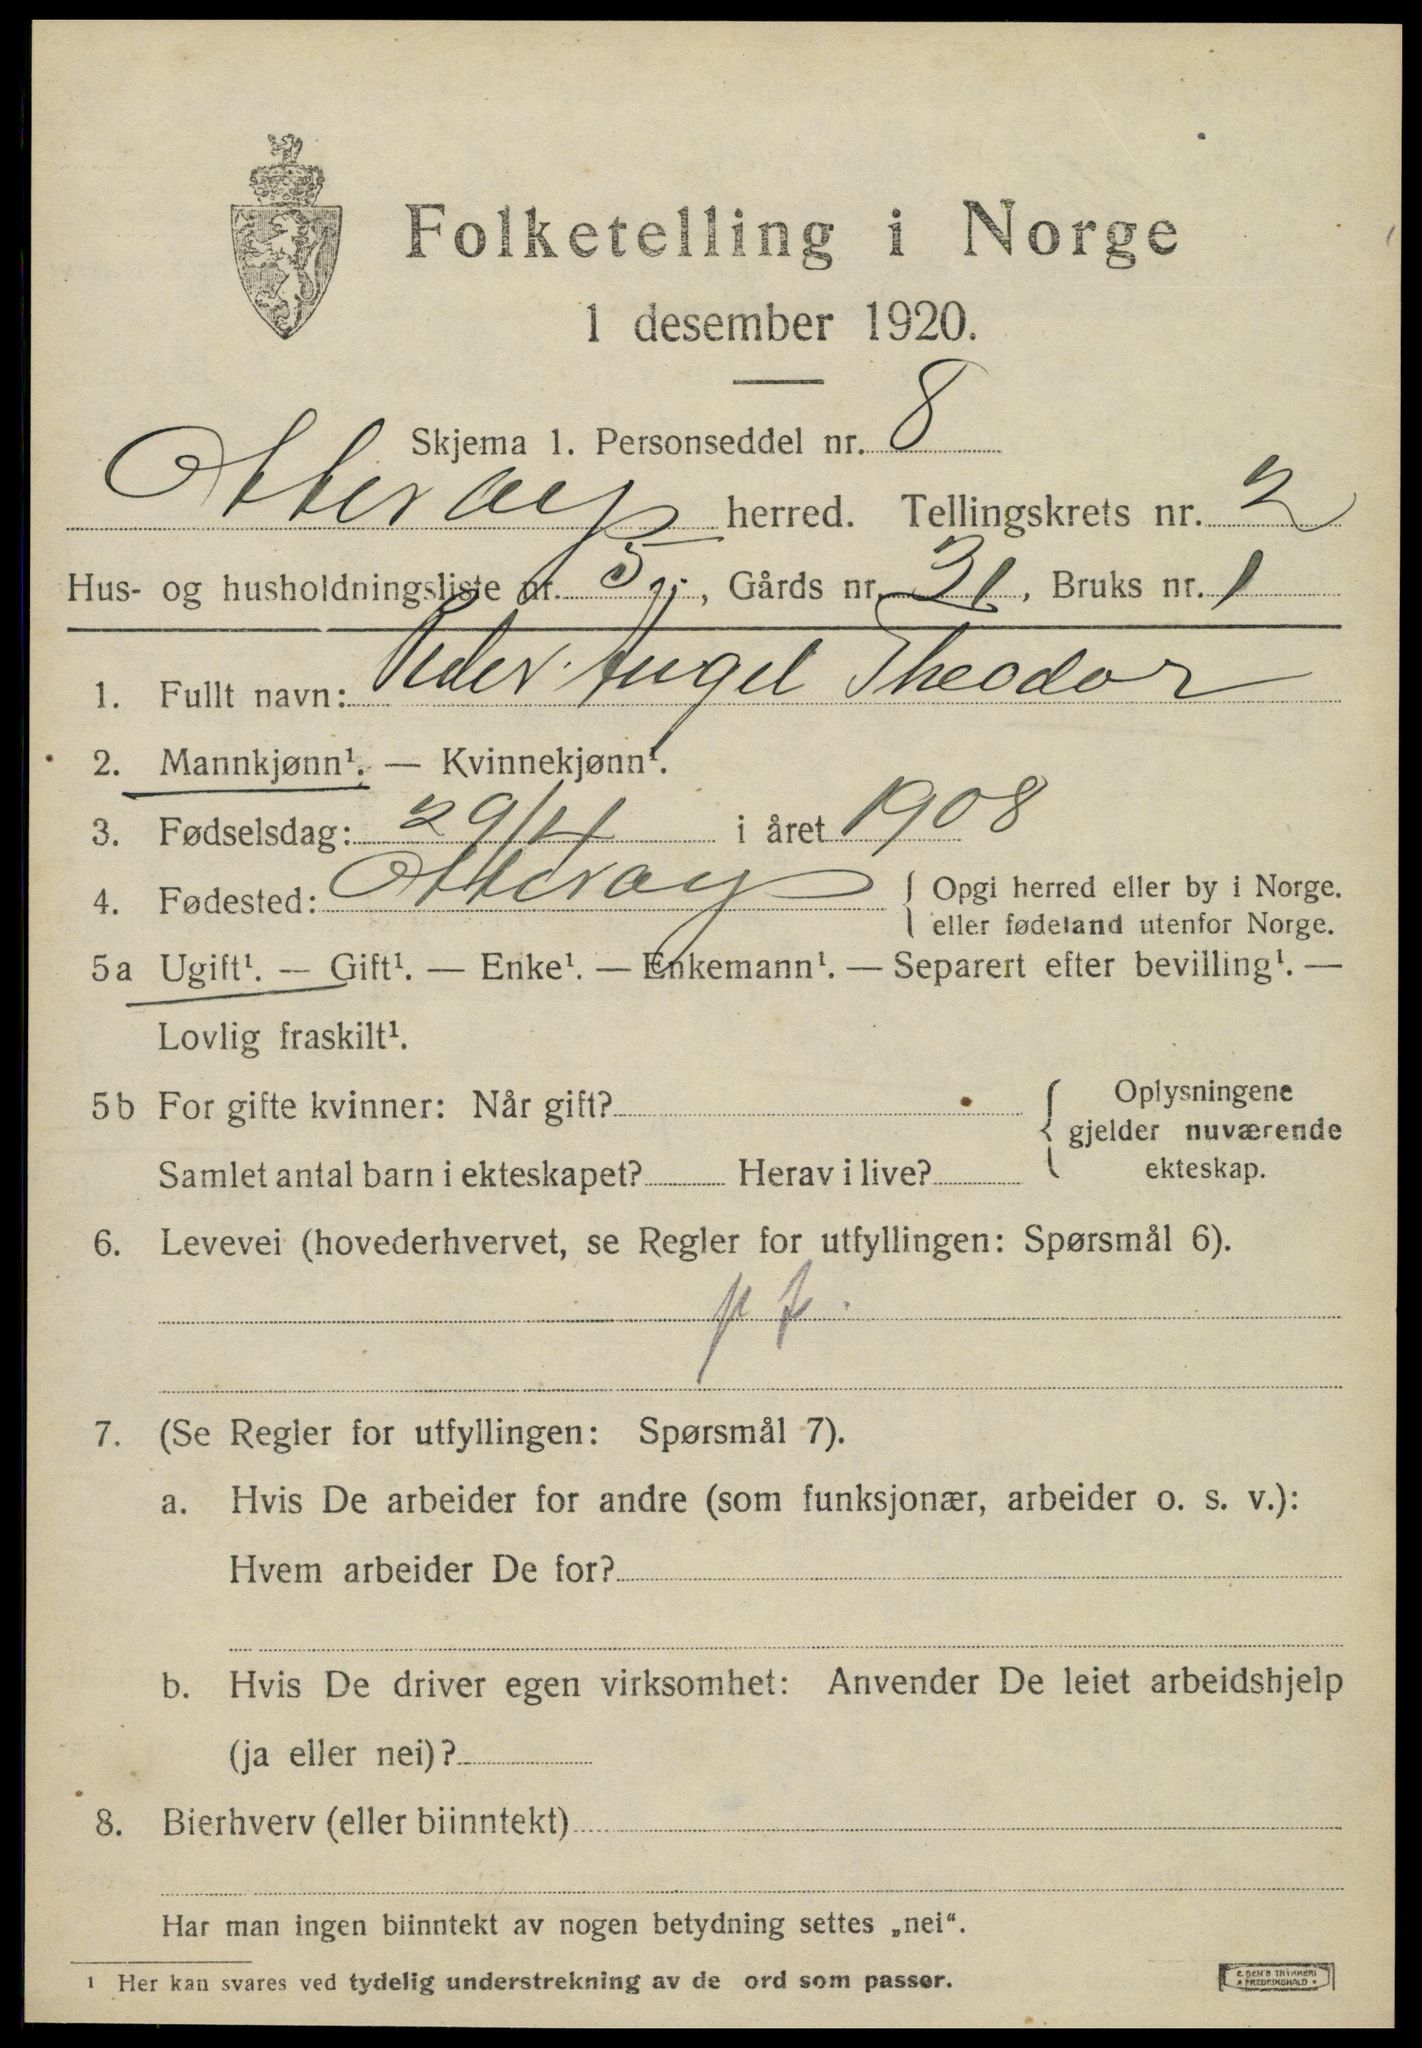 Folketelling i Norge
1 desember 1920.
Skjema 1. Personseddel nr. 8
Otterøy herred. Tellingskrets nr. 2
Hus- og husholdningsliste nr. 5, Gårds nr. 31, Bruks nr. 1
1. Fullt navn: Peder Angel Theodor
2. Mannkjønn¹. — Kvinnekjønn¹.
3. Fødselsdag: 29/4 i året 1908
4. Fødested: Otterøy { Opgi herred eller by i Norge.
eller fødeland utenfor Norge.
5a Ugift¹. — Gift¹. — Enke¹. — Enkemann¹. — Separert efter bevilling¹. —
Lovlig fraskilt¹.
5b For gifte kvinner: Når gift? { Oplysningene
gjelder nuværende
Samlet antal barn i ekteskapet? Herav i live? ekteskap.
6. Levevei (hovederhvervet, se Regler for utfyllingen: Spørsmål 6).
7. (Se Regler for utfyllingen: Spørsmål 7).
a. Hvis De arbeider for andre (som funksjonær, arbeider o. s. v.):
Hvem arbeider De for?
b. Hvis De driver egen virksomhet: Anvender De leiet arbeidshjelp
(ja eller nei)?
8. Bierhverv (eller biinntekt)
Har man ingen biinntekt av nogen betydning settes „nei“.
¹ Her kan svares ved tydelig understrekning av de ord som passer.
E. SEM'S TRYKKERI
FREDRIKSHALD